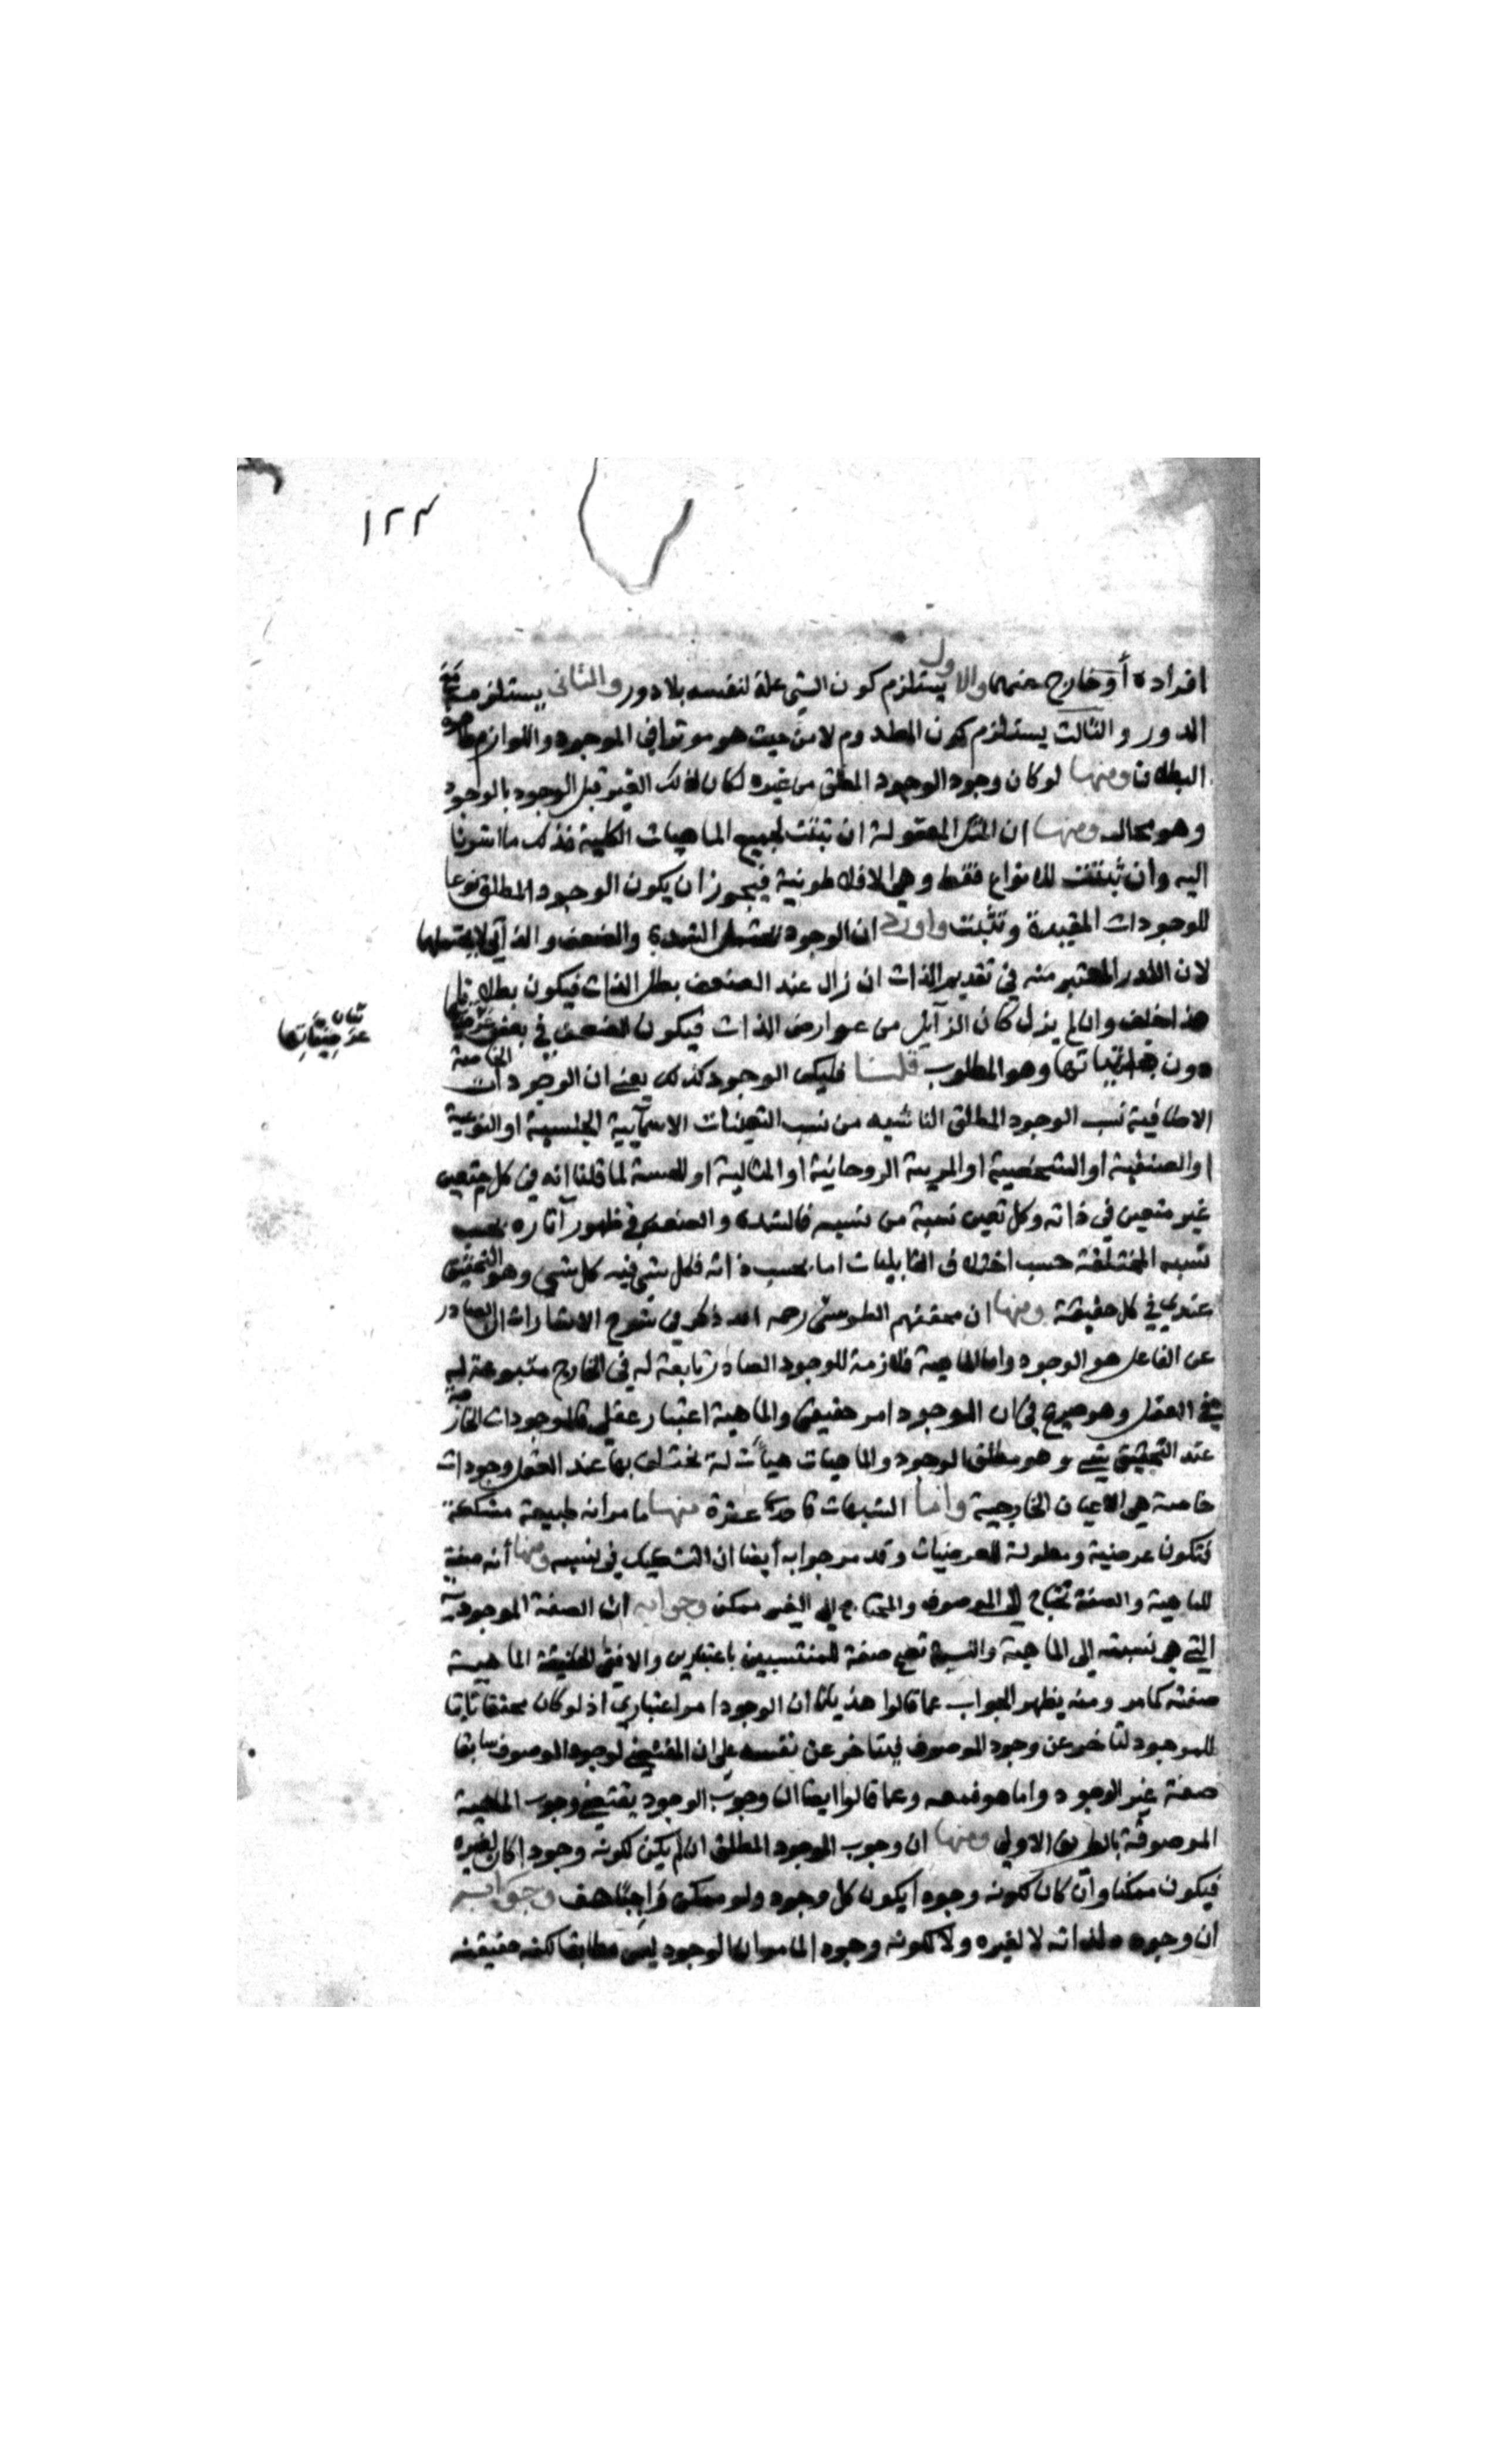 ١٢٣
افراده أو خارج عنهما والاول يستلزم كون الشي علة لنفسه بلا دور والثانى يستلزم
الدور والثالث يستلزم كون المعدوم لا من حيث هو موثرا في الموجود واللوازم
البطلان ومنها لو كان وجود الوجود المطلق من غيره لكان لذلك الغير قبل الوجود بالوجود
وهو محال ومنها ان المثل المعقولة ان تثبت لجميع الماهيات الكلية فذلك ما اشرنا
اليه وان تثبت للانواع فقط وهي الافلاطونية فيجوز ان يكون الوجود المطلق نوعا
للوجودات المقيدة وتثبت واورد ان الوجود الشدة والضعف والذاتي لا
لان القدر المعتبر منه في تقدير الذات ان زال عند الضعف بطل الذات فيكون
هذا خلف وان لم يزل كان الزايل من عوارض الذات فيكون الضعف في بعض
دون وهو المطلوب قلنا فليكن الوجود كذلك يعنى ان الوجودات الخاصة
الاضافية نسب الوجود المطلق الناشيه من نسب التعينات الاسمآيية الجنسية او النوعية
او الصنفية او الشخصية او الروحانية او المثالية او لما قلنا انه في كل متعين
غير متعين في ذاته وكل تعين نسبة من نسبه فالشدة والضعف في ظهور آثاره بحسب
نسبه المختلفة حسب اختلاف القابليات اما بحسب ذاته فكل شي فيه كل شي وهو التحقيق
عندي في كل حقيقة ومنها ان محققهم الطوسى رحمه الله ذكر في شرح الاشارات ان الصادر
عن الفاعل هو الوجود واما الماهية فلازمة للوجود الصادر تابعة له في الخارج متبوعة له
في العقل وهو صريح في ان الوجود امر حقيقى والماهية اعتبار عقلى فالموجودات
عند التحقيق شى وهو مطلق الوجود والماهيات هيآت له تختلف بها عند العقل وجودات
خاصة هى الاعيان الخارجية واما الشبهات فاحدى عشرة منها ما مر انه طبيعة مشككة
فتكون عرضية ومعلولة للعرضيات وقد مر جوابه أيضا ان التشكيك في نسبه ومنها أنه صفة
للماهية والصفة تحتاج الى الموصوف والمحتاج الي الغير ممكن وجوابه ان الصفة الموجودية
التي هي نسبته الى الماهية والنسبة تقع صفة للمنتسبين باعتبارين والافقى الحقيقة الماهية
صفته كما مر ومنه يظهر الجواب عما قالوا ان الوجود امر اعتباري اذ لو كان محققا ثابتا
للموجود لتاخر عن وجود الموصوف فيتاخر عن نفسه على ان المقتضى لوجود الموصوف سابقا
صفة غير الوجود واما هو وعما قالوا ايضا ان وجوب الوجود يقتضى وجوب الماهية
الموصوفة بالطريق الاولى ومنها ان وجوب الوجود المطلق ان لم يكن لكونه وجودا كان لغيره
فيكون ممكنا وان كان لكونه وجودا يكون كل وجود ولو ممكن واجبا هف وجوابه
ان وجوده لذاته لا لغيره ولا لكونه وجودا لما مر ان الوجود ليس مطابقا لكنه حقيقته